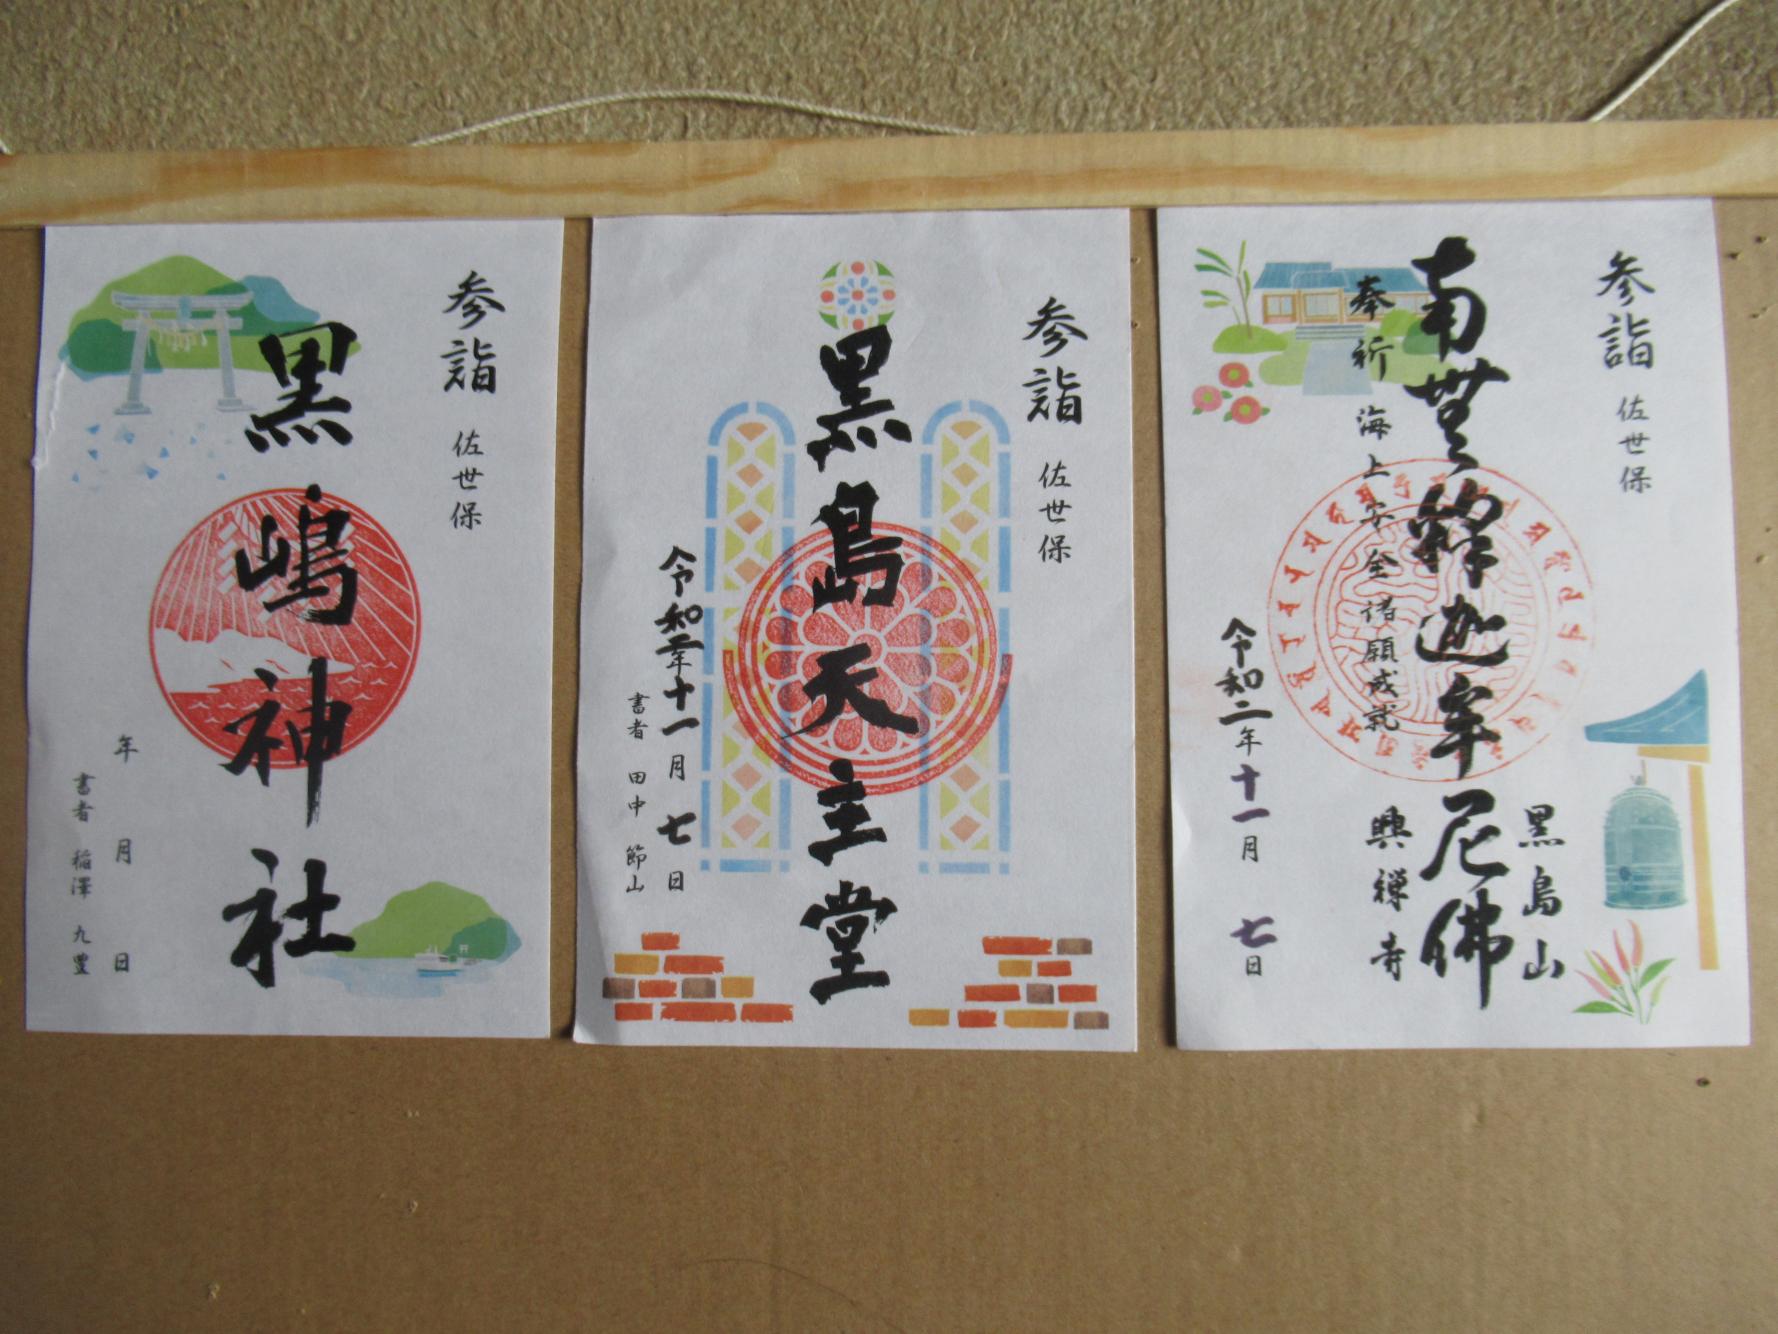 参詣 佐世保
黒嶋神社
年 月 日
書者 稲澤 九豊
参詣 佐世保
黒島天主堂
令和二年十一月七日
書者 田中 節山
参詣 佐世保
黒島山
南無釋迦牟尼佛
奉祈 海上安全諸願成就
興禅寺
令和二年十一月七日